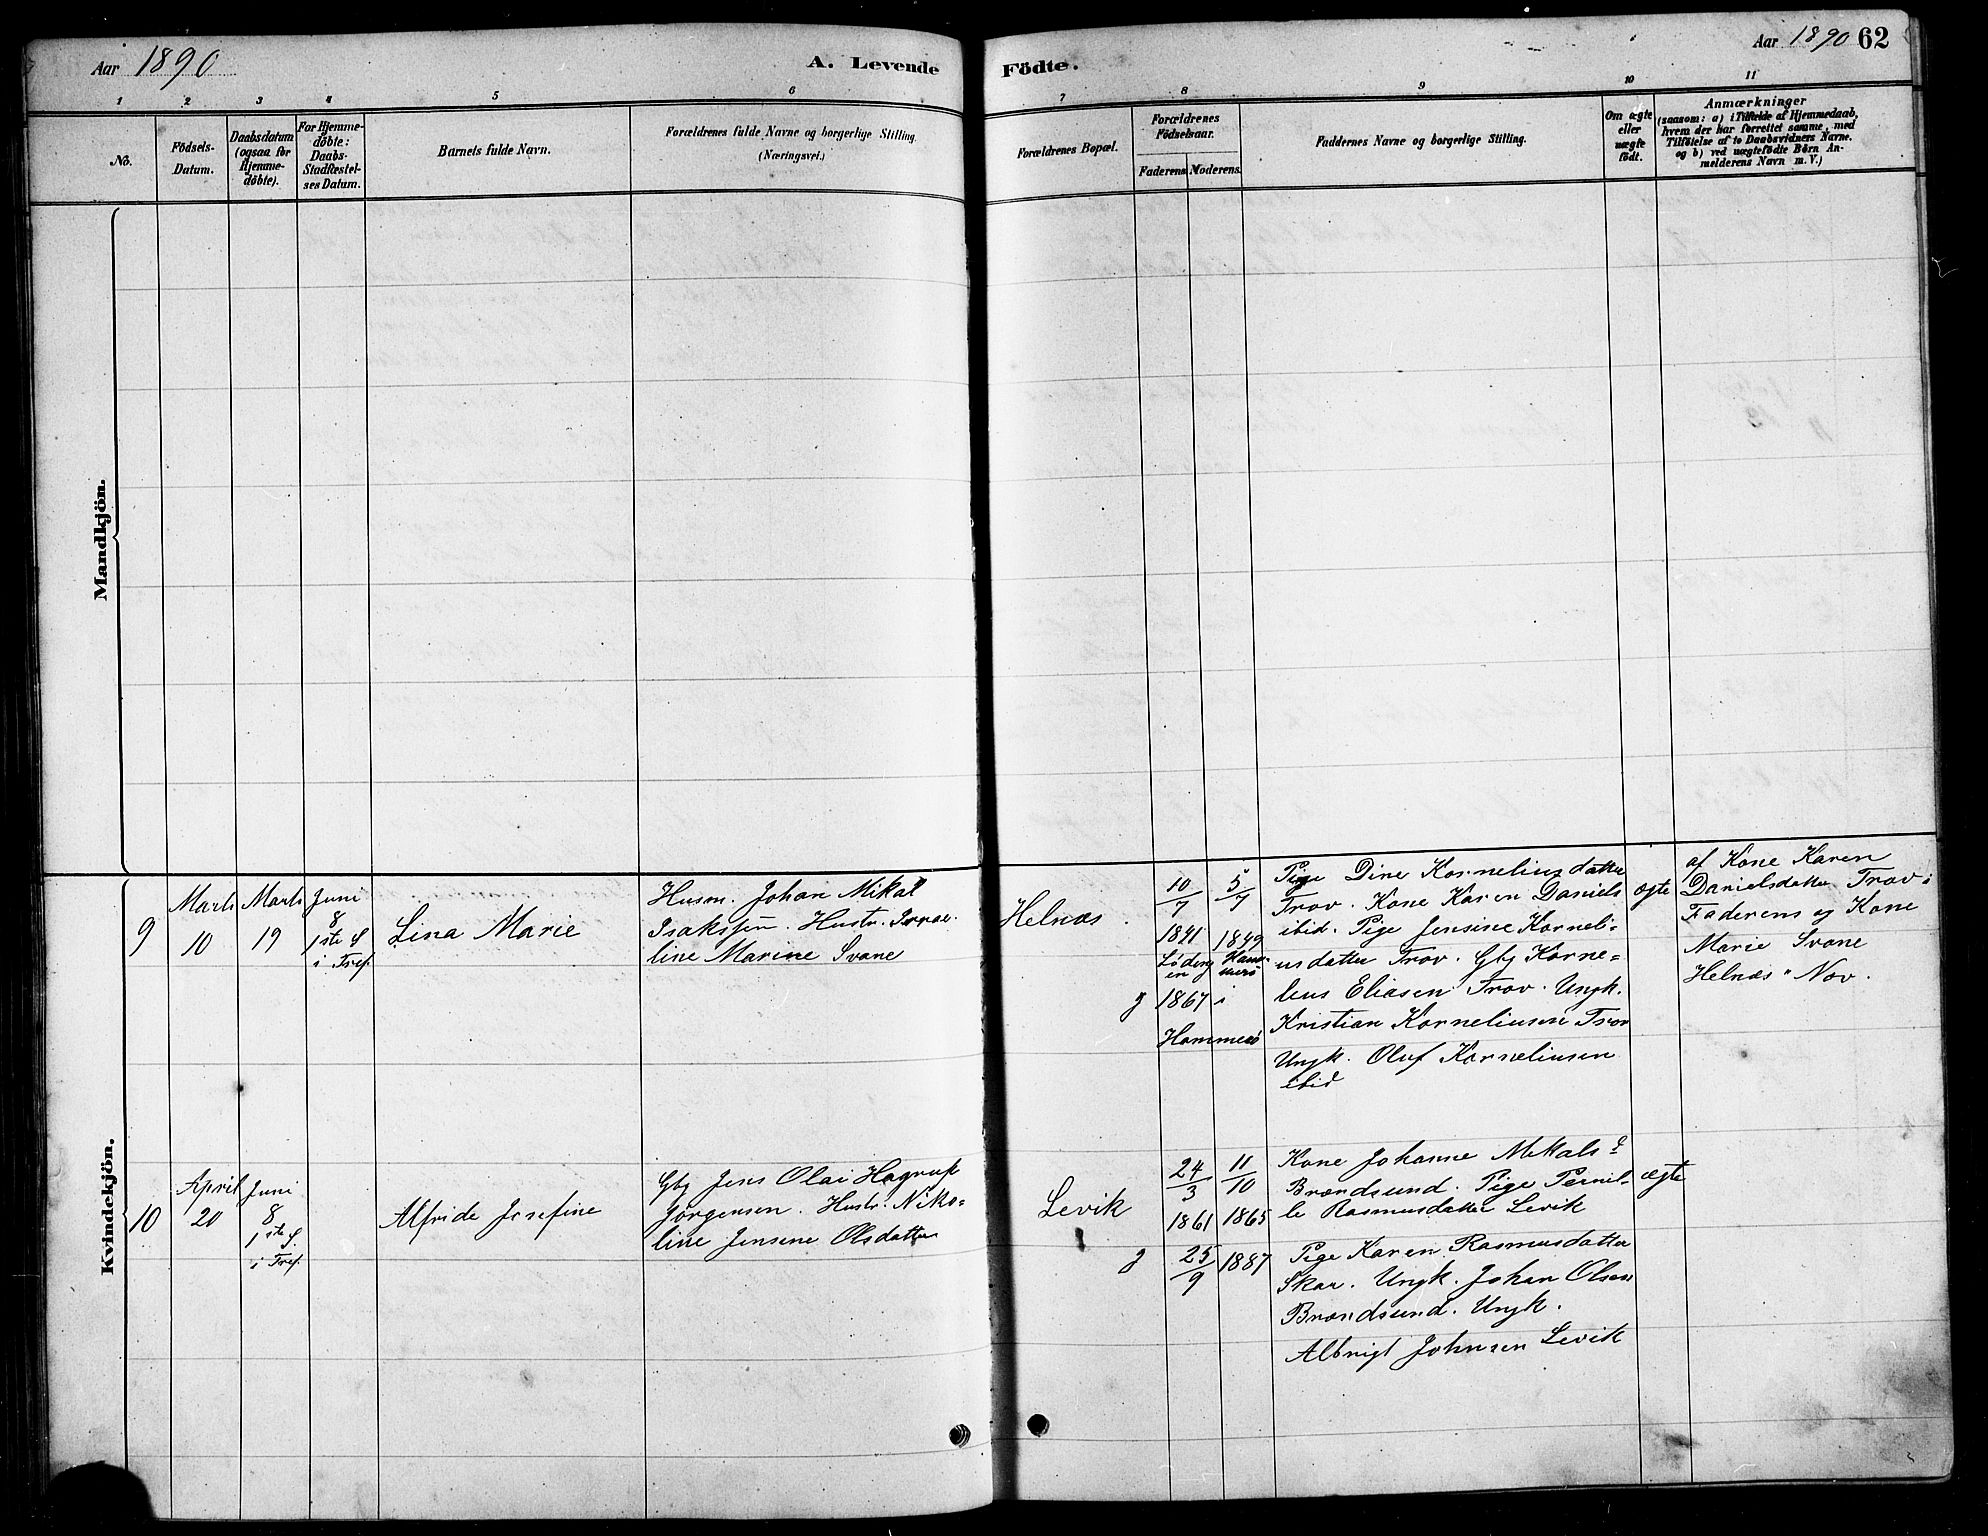 Aar 1890
A. Levende
Födte.
Aar 1890 62
1 2 3 4 5 6 7 8 9 10 11
No.
Födsels-
Datum.
Daabsdatum
(ogsaa for
Hjemme-
döbte).
For Hjemme-
döbte:
Daabs-
Stadfæstel-
ses Datum.
Barnets fulde Navn.
Forældrenes fulde Navne og borgerlige Stilling.
(Næringsvei.)
Forældrenes Bopæl.
Forældrenes
Födselsaar.
Faderens. Moderens.
Faddernes Navne og borgerlige Stilling.
Om ægte
eller
uægte
födt.
Anmærkninger
(saasom: a) i Tilfælde af Hjemmedaab,
hvem der har forrettet samme, med
Tilföielse af to Daabsvidners Navne.
og b) ved uægtefödte Börn An-
melderens Navn m. V.)
Mandkjön.
Kvindekjön.
9
Marts
10
Marts
19
Juni
8
1ste S
i Tref.
Lina Marie
Husm. Johan Mikal
Isaksen. Hustr.
line Marine Svane
Helnæs.
10
7
1841
Löding
en
5
7
1849
Ham
merö
g 1867 i
Hammerö
Pige Dine Korneliusdatter
Trov. Kone Karen Daniels
ibid. Pige Jensine Korneli-
usdatter Trov. Gbg Korne-
lius Eliasen Trov. Ungk.
Kristian Korneliusen Trov
Ungk. Oluf Korneliusen
ibid
ægte
af Kone Karen
Danielsdatter Trov i
Faderens og Kone
Marie Svane
Helnæs " Nov.
10
April
20
Juni
8
1ste S.
i Tref.
Alfride Josefine
Gbg Jens Olai Hagrup
Jørgensen. Hustr. Niko-
line Jensine Olsdatter
Levik
24
3
1861
11
10
1865
g 25
9
1887
Kone Johanne Mikals d
Brændsund. Pige Pernil-
le Rasmusdatter Levik
Pige Karen Rasmusdatter
Skar. Ungk. Johan Olsen
Brændsund. Ungk.
Albrigt Johnsen Levik
ægte